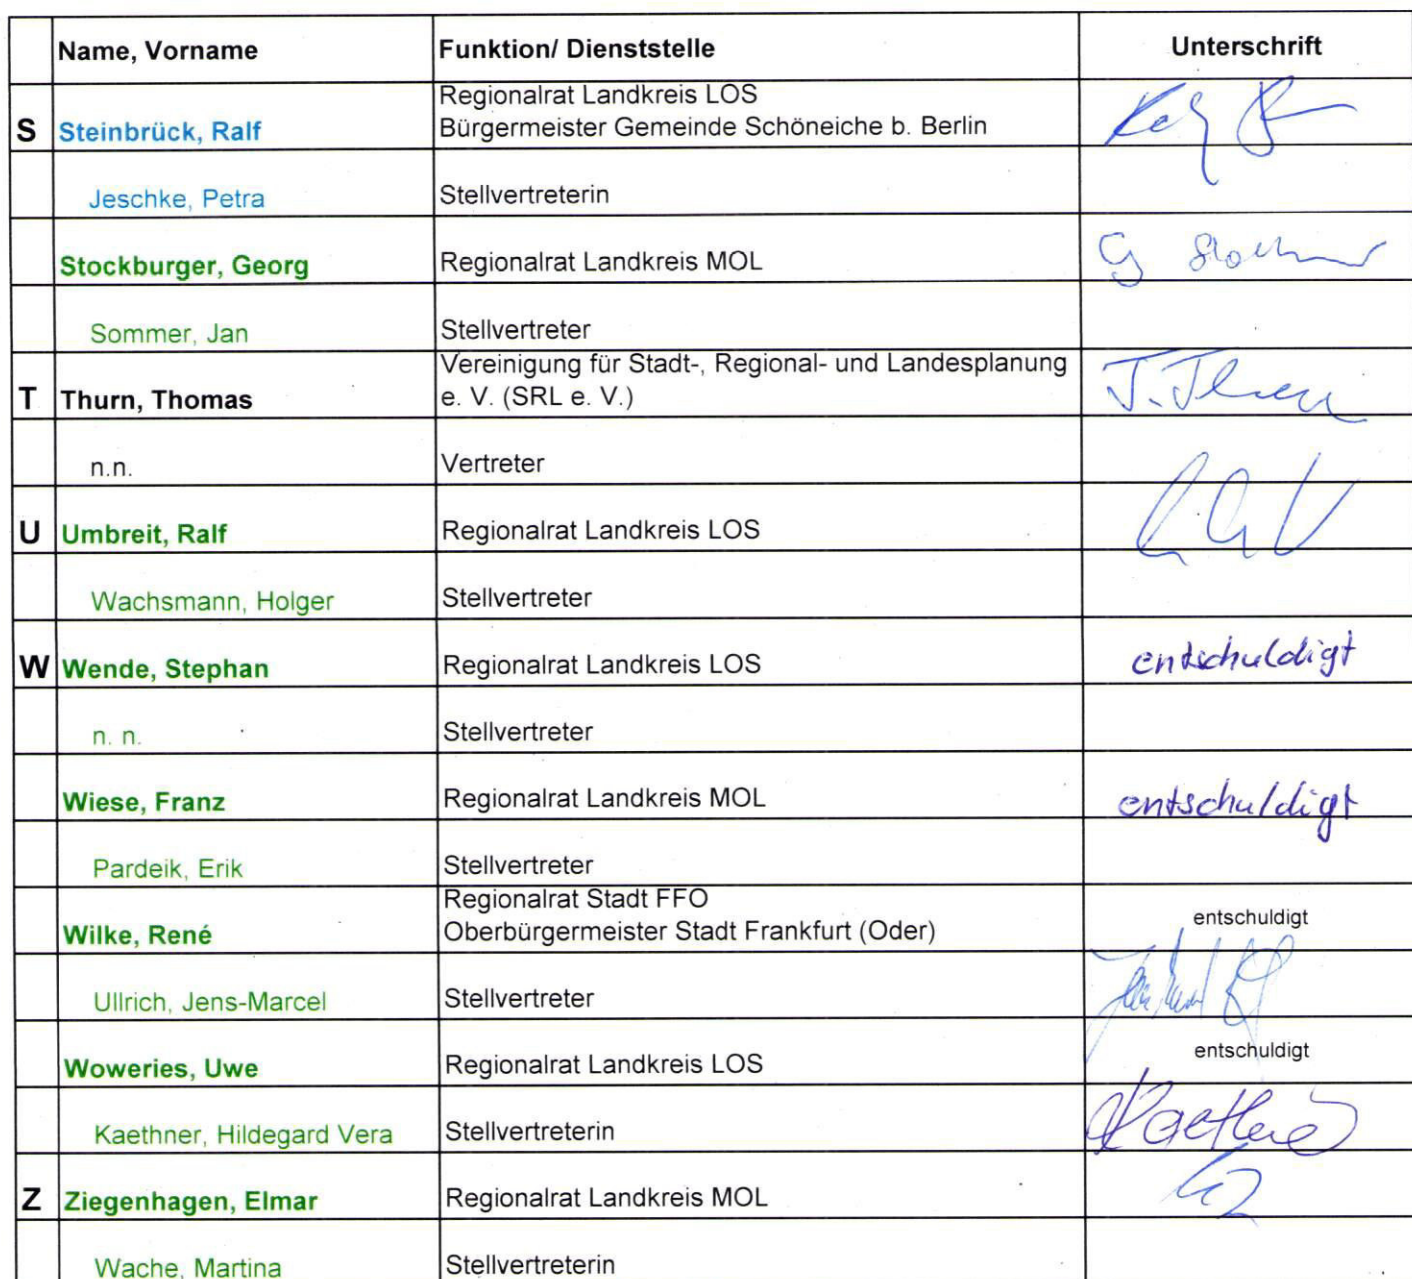 Name, Vorname Funktion/ Dienststelle Unterschrift
Regionalrat Landkreis LOS
S Steinbrück, Ralf Bürgermeister Gemeinde Schöneiche b. Berlin
Jeschke, Petra Stellvertreterin
Stockburger, Georg Regionalrat Landkreis MOL
Sommer, Jan Stellvertreter
Vereinigung für Stadt-, Regional- und Landesplanung
T Thurn, Thomas e. V. (SRL e. V.)
n.n. Vertreter
U Umbreit, Ralf Regionalrat Landkreis LOS
Wachsmann, Holger Stellvertreter
W Wende, Stephan Regionalrat Landkreis LOS entschuldigt
n. n. Stellvertreter
Wiese, Franz Regionalrat Landkreis MOL entschuldigt
Pardeik, Erik Stellvertreter
Regionalrat Stadt FFO
Wilke, René Oberbürgermeister Stadt Frankfurt (Oder) entschuldigt
Ullrich, Jens-Marcel Stellvertreter
Woweries, Uwe Regionalrat Landkreis LOS entschuldigt
Kaethner, Hildegard Vera Stellvertreterin
Z Ziegenhagen, Elmar Regionalrat Landkreis MOL
Wache, Martina Stellvertreterin